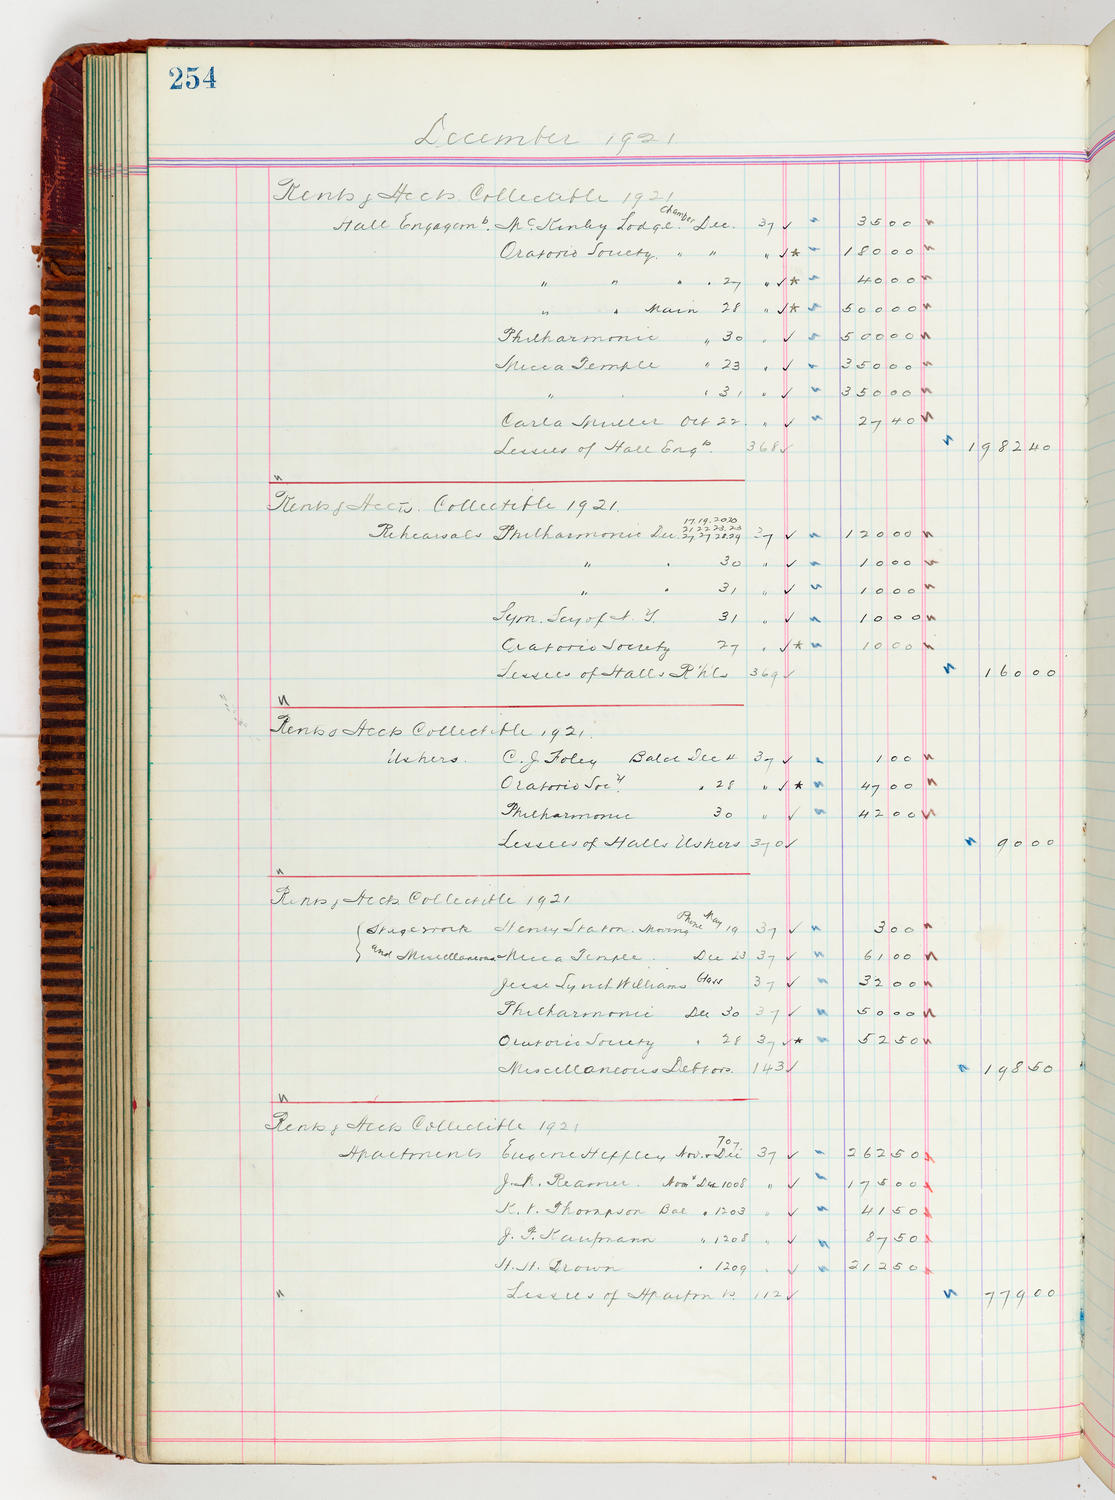 254
December 1921
Rents & Accts Collectible 1921
Hall Engagemts. McKinley Lodge. Chamber Dec. 37 ✓ 35 00
Oratorio Society. " " " ✓* 180 00
" " " " 27 " ✓* 40 00
" " Main 28 " ✓* 500 00
Philharmonic " 30 " ✓ 500 00
Mecca Temple " 23 " ✓ 350 00
" " " 31 " ✓ 350 00
Carla Muller Oct 22 " ✓ 27 40
Lessees of Hall Engts. 368 ✓ 1982 40
Rents & Accts. Collectible 1921.
17.19.20.20.
Rehearsals Philharmonic Dec. 21.22.23.23 37 ✓ 120 00
27.27.28.29
" " 30 " ✓ 10 00
" " 31 " ✓ 10 00
Sym. Socy of N. Y. 31 " ✓ 10 00
Oratorio Society 27 " ✓* 10 00
Lessees of Halls R'h'ls 369 ✓ 160 00
Rents & Accts Collectible 1921.
Ushers. C. J. Foley Balce Dec 4 37 ✓ 1 00
Oratorio Socy. " 28 " ✓* 47 00
Philharmonic 30 " ✓ 42 00
Lessees of Halls Ushers 370 ✓ 90 00
Rents & Accts Collectible 1921
Stagework Henry Staton. Moving Phone May 19 37 ✓ 3 00
and Miscellaneous Mecca Temple. Dec 23 37 ✓ 61 00
Jesse Lynch Williams Glass 37 ✓ 32 00
Philharmonic Dec 30 37 ✓ 50 00
Oratorio Society " 28 37 ✓* 52 50
Miscellaneous Debtors. 143 ✓ 198 50
Rents & Accts Collectible 1921
Apartments Eugene Heffley Nov. & Dec 707 37 ✓ 262 50
J. R. Reamer. Nov & Dec 1008 " ✓ 175 00
K. V. Thompson Bal " 1203 " ✓ 41 50
J. F. Kaufmann " 1208 " ✓ 87 50
H. H. Brown " 1209 " ✓ 212 50
Lessees of Apartmts. 112 ✓ 779 00